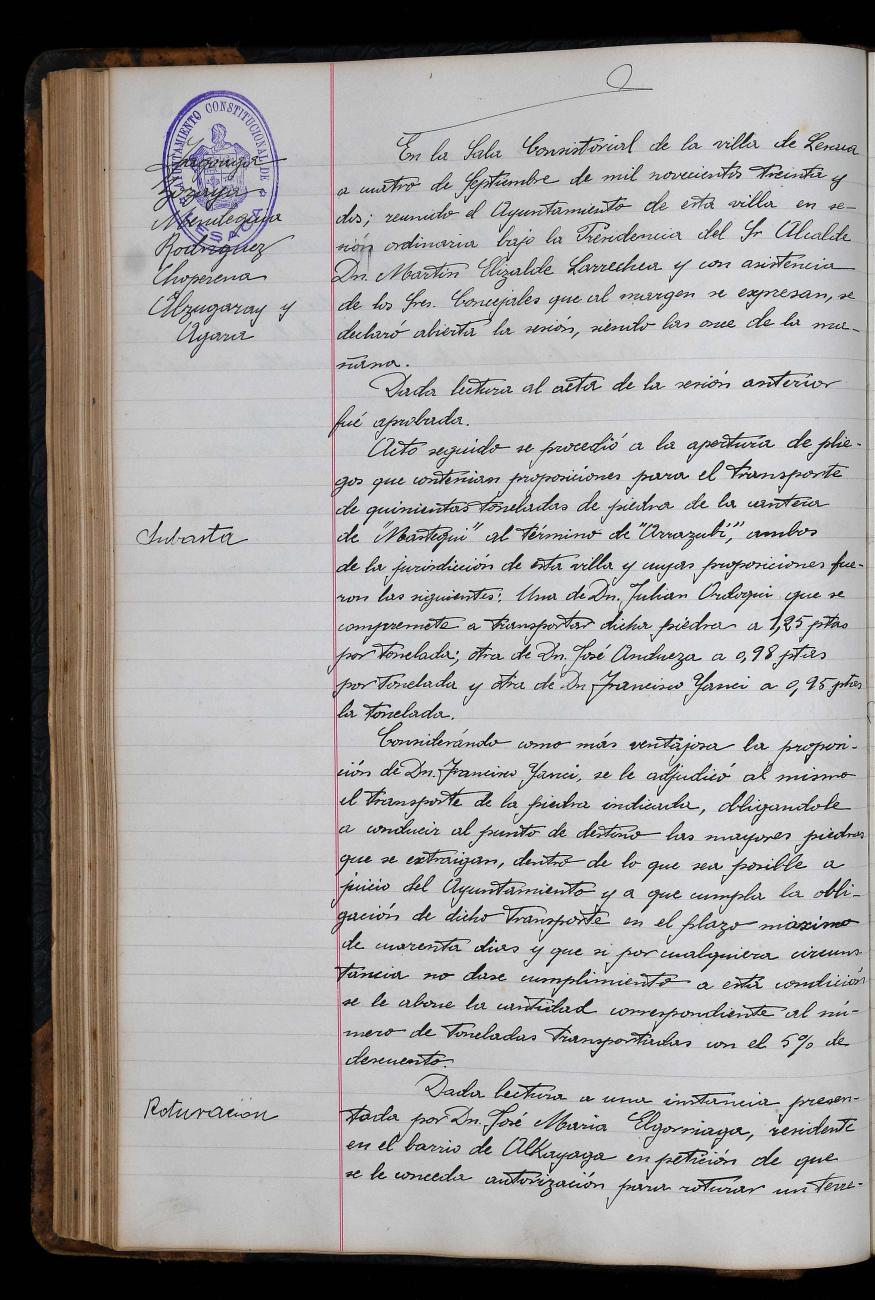 AYUNTAMIENTO CONSTITUCIONAL DE LESACA
Mendeguia
Rodriguez
Choperena
Elzugaray y
Ayara
En la Sala Consistorial de la villa de Lesaca
a cuatro de Septiembre de mil novecientos treinta y
dos; reunido el Ayuntamiento de esta villa en se-
sión ordinaria bajo la Presidencia del Sr Alcalde
Dn. Martin Elizalde Larrechea y con asistencia
de los Sres. Concejales que al margen se expresan, se
declaró abierta la sesión, siendo las once de la ma-
ñana.
Dada lectura al acta de la sesión anterior
fué aprobada.
Acto seguido se procedió a la apertura de plie-
gos que contenian proposiciones para el transporte
de quinientas toneladas de piedra de la cantera
Subasta
de "Mastegui" al término de "Arrazubi", ambos
de la jurisdicción de esta villa y cuyas proposiciones fue-
ron las siguientes: Una de Dn. Julian Ordoqui que se
compromete a transportar dicha piedra a 1,25 ptas
por tonelada; otra de Dn. José Andueza a 0,98 ptas
por tonelada y otra de Dn Francisco Yanci a 0,95 ptas
la tonelada.
Considerándo como más ventajosa la proposi-
ción de Dn. Francisco Yanci, se le adjudicó al mismo
el transporte de la piedra indicada, obligandole
a conducir al punto de destino las mayores piedras
que se extraigan, dentro de lo que sea posible a
juicio del Ayuntamiento y a que cumpla la obli-
gación de dicho transporte en el plazo máximo
de cuarenta dias y que si por cualquiera circuns
tancia no dase cumplimiento a esta condición
se le abone la cantidad correspondiente al nú-
mero de toneladas transportadas con el 5% de
descuento.
Roturación
Dada lectura a una instancia presen-
tada por Dn. José Maria Elgorriaga, residente
en el barrio de Alkayaga en petición de que
se le conceda autorización para roturar un terre-